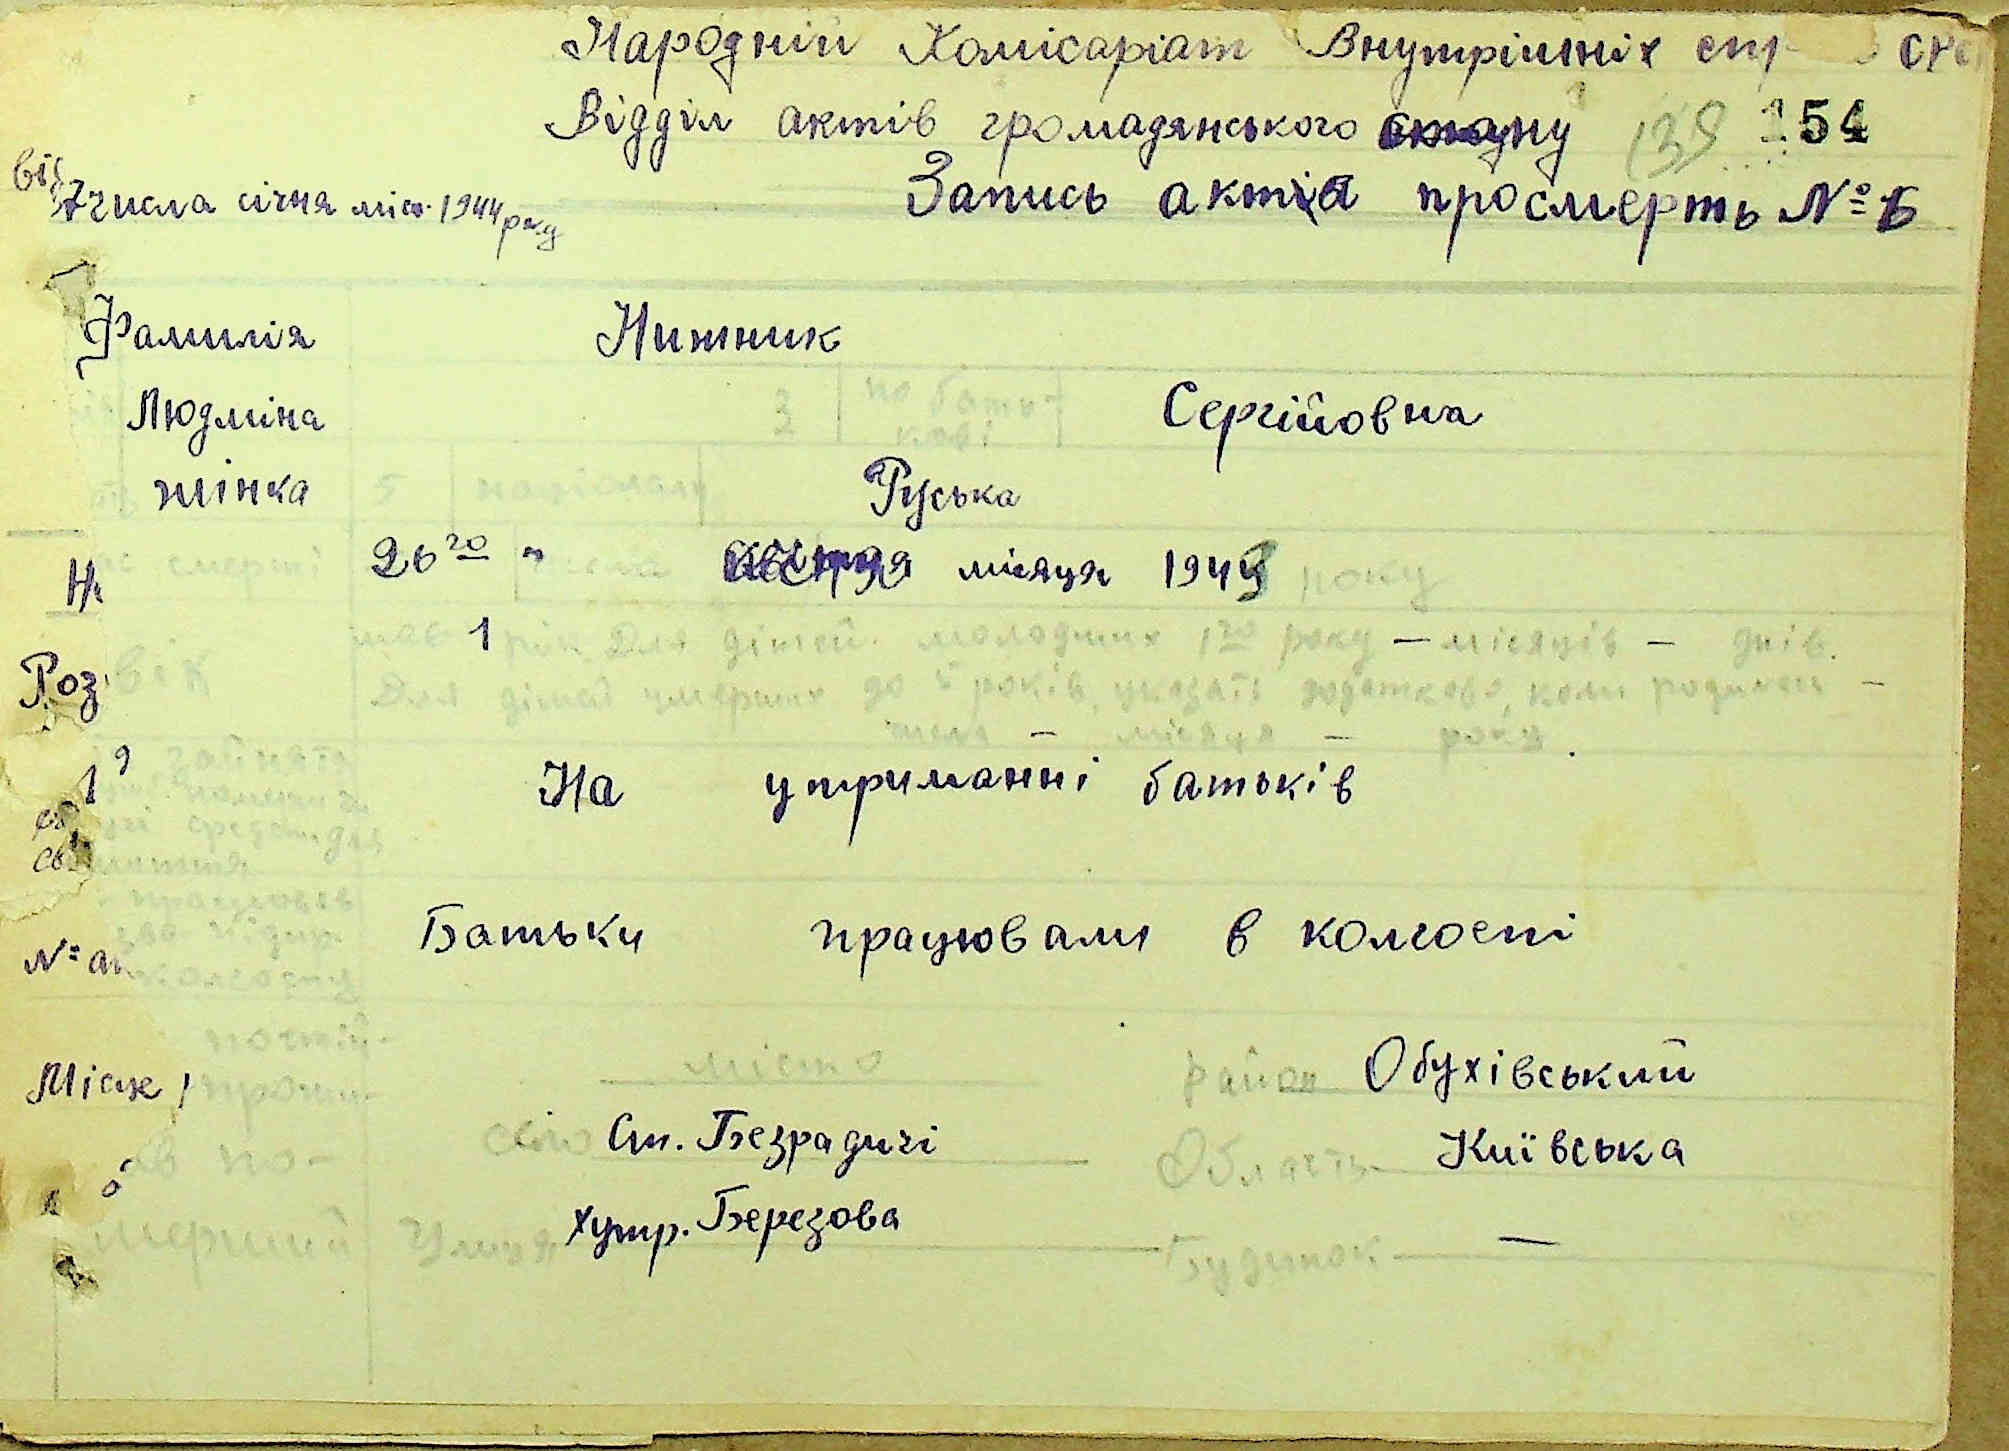 Народній Комісаріат Внутрішніх
Відділ актів громадянського стану 139 154
Запись акт а про смерть № 6
числа січня міс. 1944 року
Фамилія Нижник
Людміна 3 по бать-кові Сергійовна
жінка 5 націонал Руська
смерті 26 го " місяця 194 року
Роз вік має 1 рік Для дітей молодших 1го року — місяців — днів.
Для дітей умерших до 5 років, указать додатково, коли родилась —
числа — місяця — року.
На утриманні батьків
Батьки працювали в колгоспі
№ ак колгоспу
Місце місто район Обухівський
село Ст. Безрадичі Область Київська
мерший Улиця хутр. Березова Будинок —